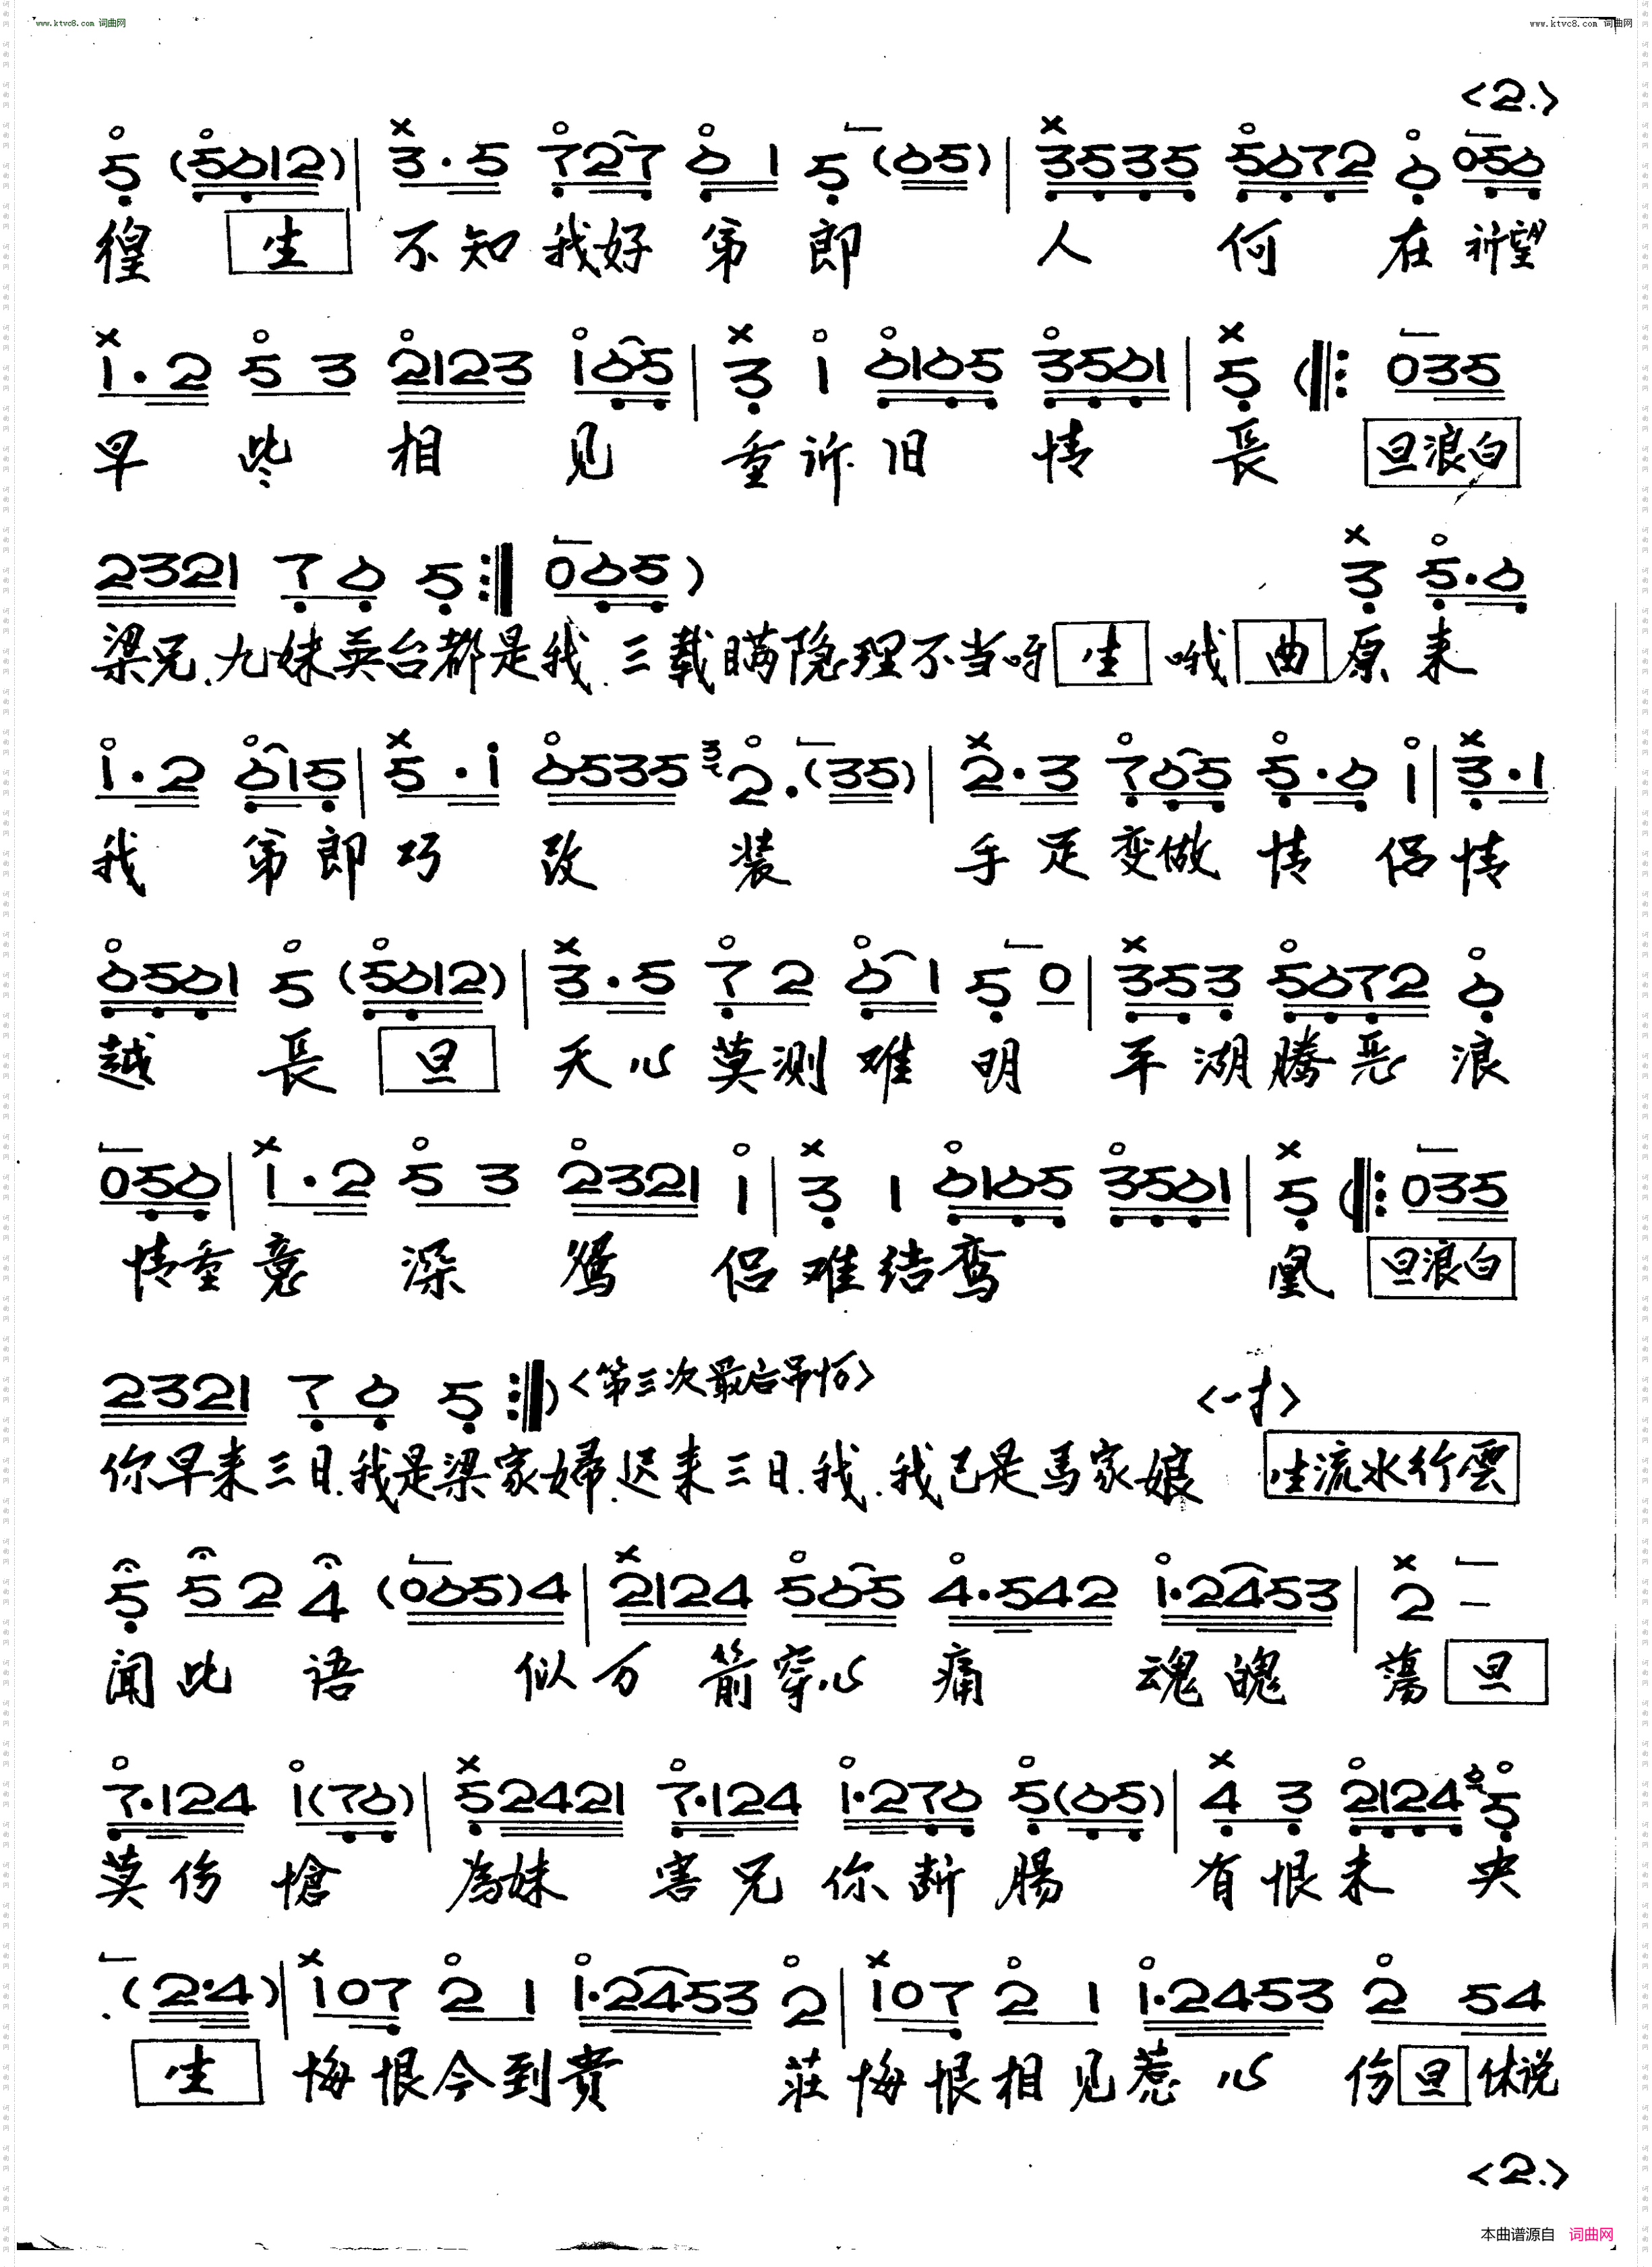 www.ktvc8.com 词曲网
www.ktvc8.com 词曲网
<2.>
5 (5612) | 3·5 727 6 1 5 (65) | 3535 5672 6 056
徨 生 不知我好第郎 人 何 在 祈望
1·2 5 3 2123 165 | 3 1 6165 3561 | 5 (‖: 035
早 些 相 见 重诉旧 情 長 旦浪白
2321 7 6 5 :‖ 065) 3 5·6
梁兄.九妹英台都是我.三载瞒隐理不当呀 生 哦 曲 原来
1·2 615 | 5·i 6535 2·(35) | 2·3 765 5·6 1 | 3·1
我 第郎巧 改 装 手足变做情侣情
6561 5 (5612) | 3·5 7 2 6 1 5 0 | 353 5672 6
越 長 旦 天心莫测难 明 平湖腾恶浪
056 | 1·2 5 3 2321 1 | 3 1 6165 3561 | 5 (‖: 035
情重意 深 鸳 侣难结鸾 凰 旦浪白
2321 7 6 5 :‖) <第三次最后吊慢> <一才>
你早来三日.我是梁家婦.迟来三日.我.我已是馬家娘 生流水行雲
5 5 2 4 (065)4 | 2124 565 4·542 1·2453 | 2 –
闻此 语 似万 箭穿心 痛 魂魄 蕩 旦
7·124 1(76) | 52421 7·124 1·276 5(65) | 4 3 2124 5
莫伤 愴 為妹 害兄你断腸 有恨未 央
·(2·4) | 107 2 1 1·2453 2 | 107 2 1 1·2453 2 54
生 悔恨今到贵 莊悔恨相见惹心 伤 旦 休说
<2.>
本曲谱源自 词曲网